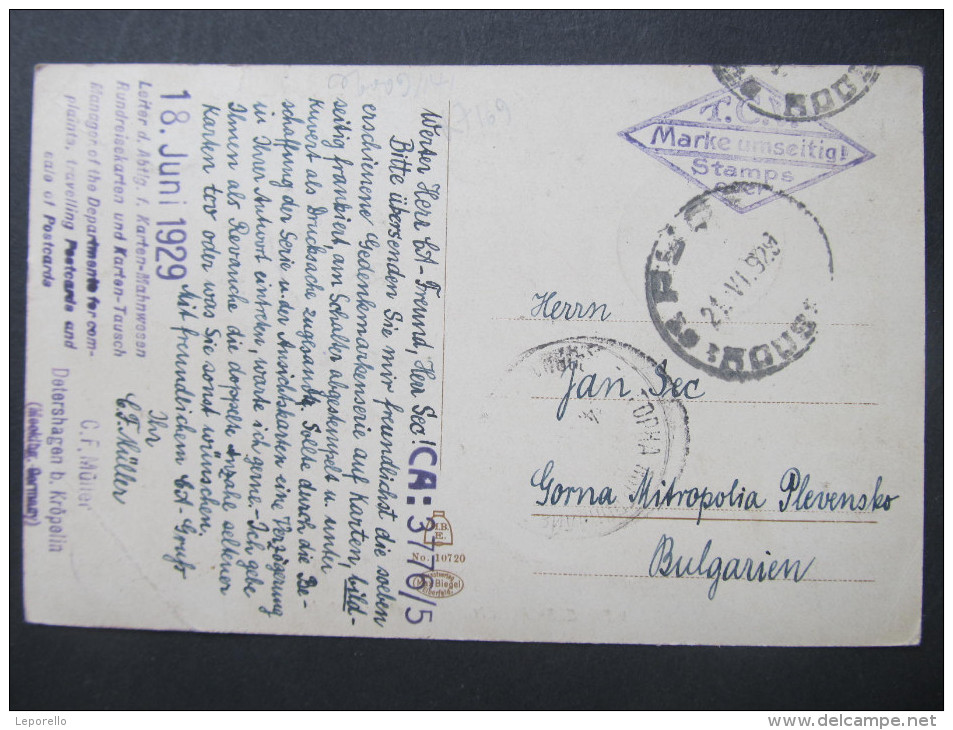 Werter Herr CA-Freund, Herr Sec!
Bitte übersenden Sie mir freundlichst die soeben
erschienene Gedenkmarkenserie auf Karten, bild-
seitig frankiert, am Schalter abgestempelt u. unter
Kuvert als Drucksache zugesandt. Sollte durch die Be-
schaffung der Serie u. den Ansichtskarten eine Verzögerung
in Ihrer Antwort eintreten, warte ich gerne. - Ich gebe
Ihnen als Revanche die doppelte Anzahl seltener
Karten tco oder was Sie sonst wünschen.
Mit freundlichen CA-Gruß
Ihr
C.F. Müller
CA: 3776/5
18. Juni 1929
Leiter d. Abtlg. f. Karten-Mahnwesen
Rundreisekarten und Karten-Tausch
Manager of the Departments for com-
plaints, travelling Postcards and
cale of Postcards
C. F. Müller
Detershagen b. Kröpelin
(Mecklbg. Germany)
No. 10720
Marke umseitig!
Stamps
21.VI.1929
Herrn
Jan Sec
Gorna Mitropolia Plevensko
Bulgarien
Leporello
www.delcampe.net